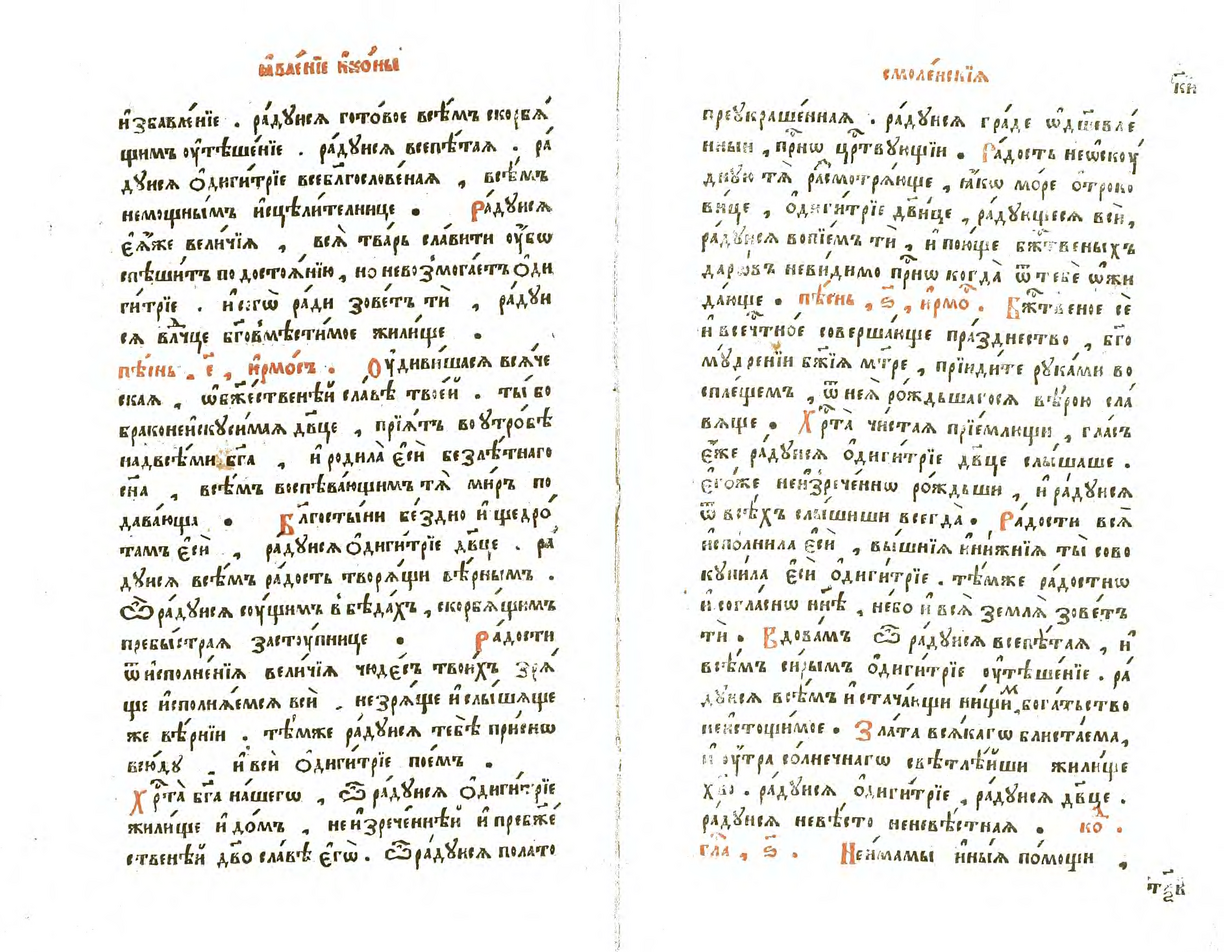 ꙗ҆вле́нїе і҆кѡ́ны
и҆збавле́нїе . ра́дꙋисѧ гото́вое всѣ́мъ скорбѧ́
щимъ ѹ҆тѣше́нїе . ра́дꙋисѧ всепѣ́таѧ . ра́
дꙋисѧ ѻ҆диги́трїе всеблг҇ослове́наѧ , всѣ́мъ
немощны́мъ и҆сцѣли́телнице . Ра́дꙋисѧ
є҆ѧ́же вели́чїѧ , всѧ̀ тва́рь сла́вити ѹ҆́бѡ
спѣши́тъ по достоѧ́нїю , но невозмога́етъ ѻ҆ди
ги́трїе . и҆ сегѡ̀ ра́ди зове́тъ тѝ , ра́дꙋи
сѧ влⷣчце бг҃овмѣсти́мое жили́ще .
пѣ́снь . є҃ , і҆рмо́съ . Ѹ҆диви́шасѧ всѧ́че
скаѧ , ѡ҆ бж҇е́ственѣй сла́вѣ твое́й . ты́ бо
браконеискꙋси́маѧ дв҃це , прїѧ́тъ во ѹтро́бѣ
надъвсѣ́ми бг҃а , и҆ родила̀ є҆сѝ безлѣ́тнаго
сн҃а , всѣ́мъ воспѣва́ющимъ тѧ̀ ми́ръ по
дава́юща . Блг҇осты́ни бе́здно и҆ щедро́
тамъ є҆сѝ , ра́дꙋисѧ ѻ҆диги́трїе дв҃це . ра́
дꙋисѧ всѣ́мъ ра́дость творѧ́щи вѣ́рнымъ .
Ѽ ра́дꙋисѧ сѹ́щимъ в бѣда́хъ , скорбѧ́щимъ
пребы́страѧ застѹ́пнице . Ра́дости
ѿ и҆сполне́нїѧ вели́чїѧ чюде́съ твои́хъ зрѧ́
ще и҆сполнѧ́емсѧ всѝ . не зрѧ́ще и҆ слы́шаще
же вѣ́рнїи . тѣ́мже ра́дꙋисѧ тебѣ̀ при́снѡ
всю́дꙋ , и҆ всѝ ѻ҆диги́трїе пое́мъ .
Хрⷭ҇та̀ бг҃а на́шегѡ , ѽ ра́дꙋисѧ ѻ҆диги́трїе
жили́ще и҆ до́мъ , неи҆зрече́ннѣй и҆ пребж҇е́
ственѣй дв҃о сла́вѣ є҆гѡ̀ . Ѽ ра́дꙋисѧ пола́то
смоле́нскїѧ
к҃и
преукраше́ннаѧ . ра́дꙋисѧ гра́де ѡ҆дш҇евле́
нныи , прⷭ҇нѡ црⷭ҇твꙋющїи . Ра́дость неѡскꙋ́
днꙋю тѧ̀ расмотрѧ́юще , ꙗ҆́кѡ мо́ре ѻ҆троко
ви́це , ѻ҆диги́трїе дв҃ице , ра́дꙋющесѧ всѝ ,
ра́дꙋисѧ вопїе́мъ тѝ , и҆ пою́ще бжⷭ҇твеныхъ
даро́въ неви́димо прⷭ҇нѡ когда̀ ѿ тебѐ ѡ҆жи
да́юще . пѣ́снь , ѕ҃ , і҆рмо́ . Бжⷭ҇твеное сѐ
и҆ всечⷭ҇тно́е соверша́юще пра́зднество , бг҃о
мꙋ́дренїи бж҃їѧ мт҃ре , прїиди́те рꙋка́ми во
спле́щемъ , ѿ неѧ̀ ро́ждьшагосѧ вѣ́рою сла́
вѧще . Хрⷭ҇та̀ чи́стаѧ прїе́млющи , гла́съ
є҆́же ра́дꙋисѧ ѻ҆диги́трїе дв҃це слы́шаше .
є҆го́же неи҆зрече́ннѡ ро́ждьши , и҆ ра́дꙋисѧ
ѿ всѣ́хъ слы́шиши всегда̀ . Ра́дости всѧ̀
и҆спо́лнила є҆сѝ , вы́шнїѧ и҆ ни́жнїѧ ты̀ сово
кꙋпи́ла є҆сѝ ѻ҆диги́трїе . тѣ́мже ра́достнѡ
и҆ согла́снѡ нн҃ѣ , не́бо и҆ всѧ̀ землѧ̀ зове́тъ
тѝ . Вдова́мъ ѽ ра́дꙋисѧ всепѣ́таѧ , и҆
всѣ́мъ си́рымъ ѻ҆диги́трїе ѹ҆тѣше́нїе . ра́
дꙋисѧ всѣ́мъ и҆стача́ющи ни́щимъ , бога́тьство
неи҆стощи́мое . Зла́та всѧ́кагѡ блиста́ема ,
и҆ ѹ҆́тра со́лнечнагѡ свѣтлѣ́йши жили́ще
хв҃о . ра́дꙋисѧ ѻ҆диги́трїе , ра́дꙋисѧ дв҃це .
ра́дꙋисѧ невѣ́сто неневѣ́стнаѧ . коⷣ .
гла́ , ѕ҃ . Не и҆́мамы и҆ны́ѧ по́мощи ,